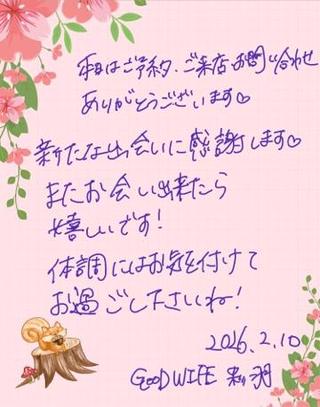 本日はご予約、ご来店、お問い合わせ
ありがとうございます♡
新たな出会いに感謝します♡
またお会い出来たら
嬉しいです!
体調にはお気を付けて
お過ごし下さいね!
2026.2.10
GOOD WIFE